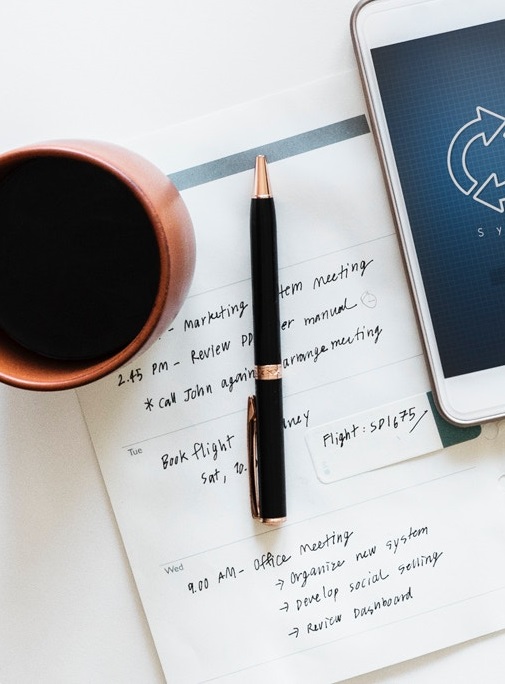 - Marketing tem meeting
2.45 PM - Review PD er manual
* Call John again arrange meeting
Tue
Book flight ney
Sat, 10.
Flight: SD1675
Wed
9.00 AM- Office meeting
→ Organize new system
→ Develop social selling
→ Review Dashboard
S Y